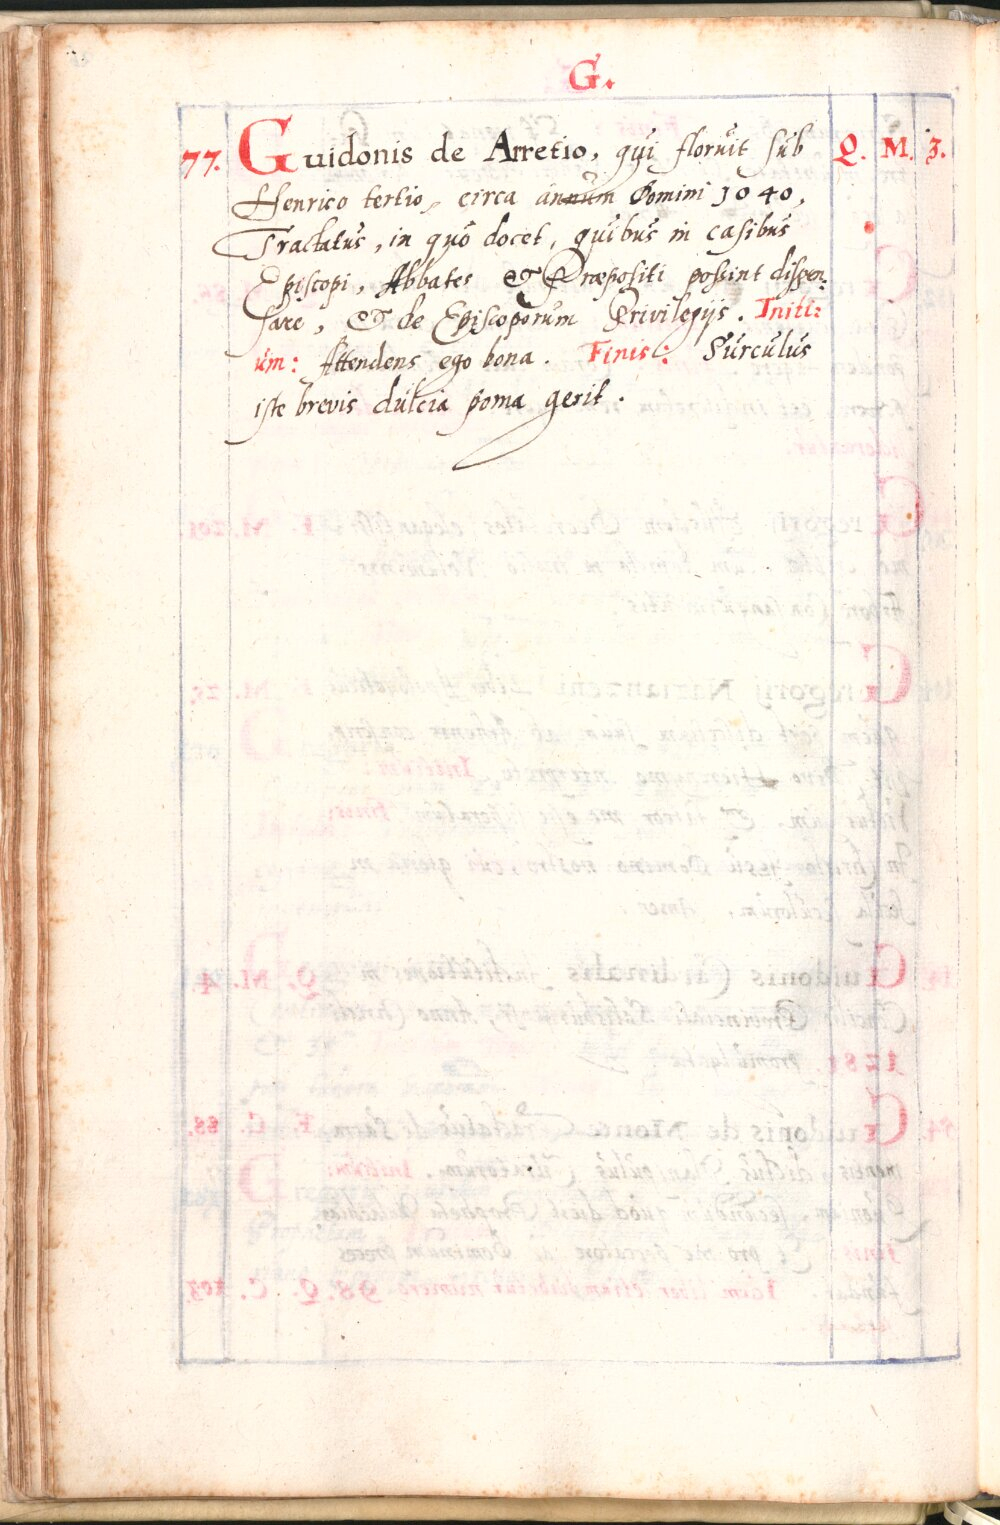 G.
77. Guidonis de Arretio, qui floruit sub Q. M. 3.
Henrico tertio, circa annum Domini 1040,
Tractatus, in quo docet, quibus in casibus
Episcopi, Abbates & Præpositi possint dispen:
sare, & de Episcoporum Privilegijs. Initi:
um: Attendens ego bona. Finis: Surculus
iste brevis dulcia poma gerit.